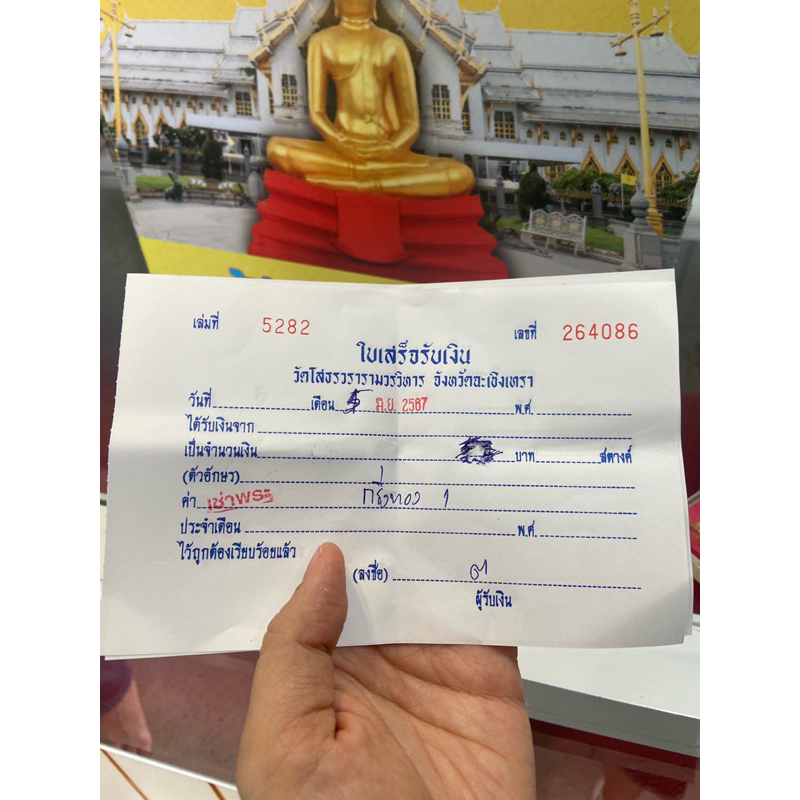 เล่มที่ 5282 เลขที่ 264086
ใบเสร็จรับเงิน
วัดโสธรวรารามวรวิหาร จังหวัดฉะเชิงเทรา
วันที่ เดือน 5 มิ.ย. 2567 พ.ศ.
ได้รับเงินจาก
เป็นจำนวนเงิน บาท สตางค์
(ตัวอักษร)
ค่า เช่าพระ 1
ประจำเดือน พ.ศ.
ไว้ถูกต้องเรียบร้อยแล้ว
(ลงชื่อ)
ผู้รับเงิน